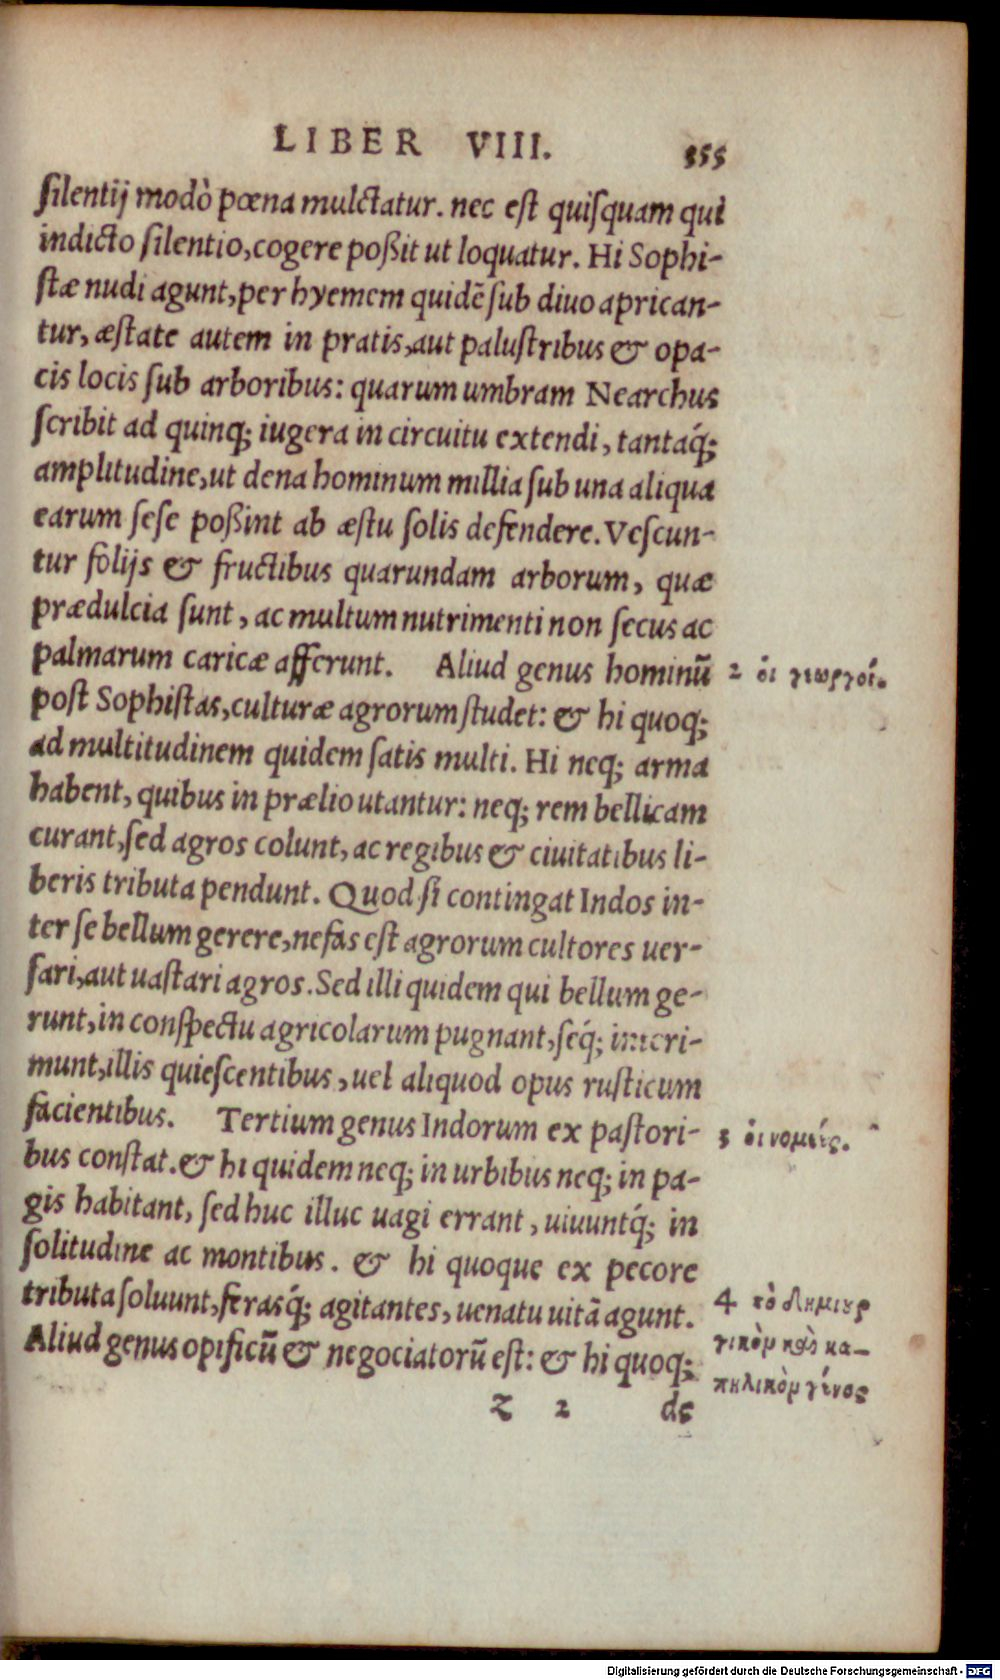 LIBER VIII. 355
silentij modò pœna mulctatur. nec est quisquam qui
indicto silentio, cogere poßit ut loquatur. Hi Sophi-
stæ nudi agunt, per hyemem quidē sub diuo aprican-
tur, æstate autem in pratis, aut palustribus & opa-
cis locis sub arboribus: quarum umbram Nearchus
scribit ad quinq; iugera in circuitu extendi, tantaq́;
amplitudine, ut dena hominum millia sub una aliqua
earum sese poßint ab æstu solis defendere. Vescun-
tur folijs & fructibus quarundam arborum, quæ
prædulcia sunt, ac multum nutrimenti non secus ac
palmarum caricæ afferunt. Aliud genus hominū
2 οἱ γεωργοί.
post Sophistas, culturæ agrorum studet: & hi quoq;
ad multitudinem quidem satis multi. Hi neq; arma
habent, quibus in prælio utantur: neq; rem bellicam
curant, sed agros colunt, ac regibus & ciuitatibus li-
beris tributa pendunt. Quod si contingat Indos in-
ter se bellum gerere, nefas est agrorum cultores uer-
sari, aut uastari agros. Sed illi quidem qui bellum ge-
runt, in conspectu agricolarum pugnant, seq́; interi-
munt, illis quiescentibus, uel aliquod opus rusticum
facientibus. Tertium genus Indorum ex pastori-
3 οἱ νομέες.
bus constat. & hi quidem neq; in urbibus neq; in pa-
gis habitant, sed huc illuc uagi errant, uiuuntq́; in
solitudine ac montibus. & hi quoque ex pecore
tributa soluunt, ferasq́; agitantes, uenatu uitā agunt.
4 τὸ δημιουρ
Aliud genus opificū & negociatorū est: & hi quoq;
γικὸν καὶ κα-
πηλικὸν γένος
z 2 de
Digitalisierung gefördert durch die Deutsche Forschungsgemeinschaft - DFG